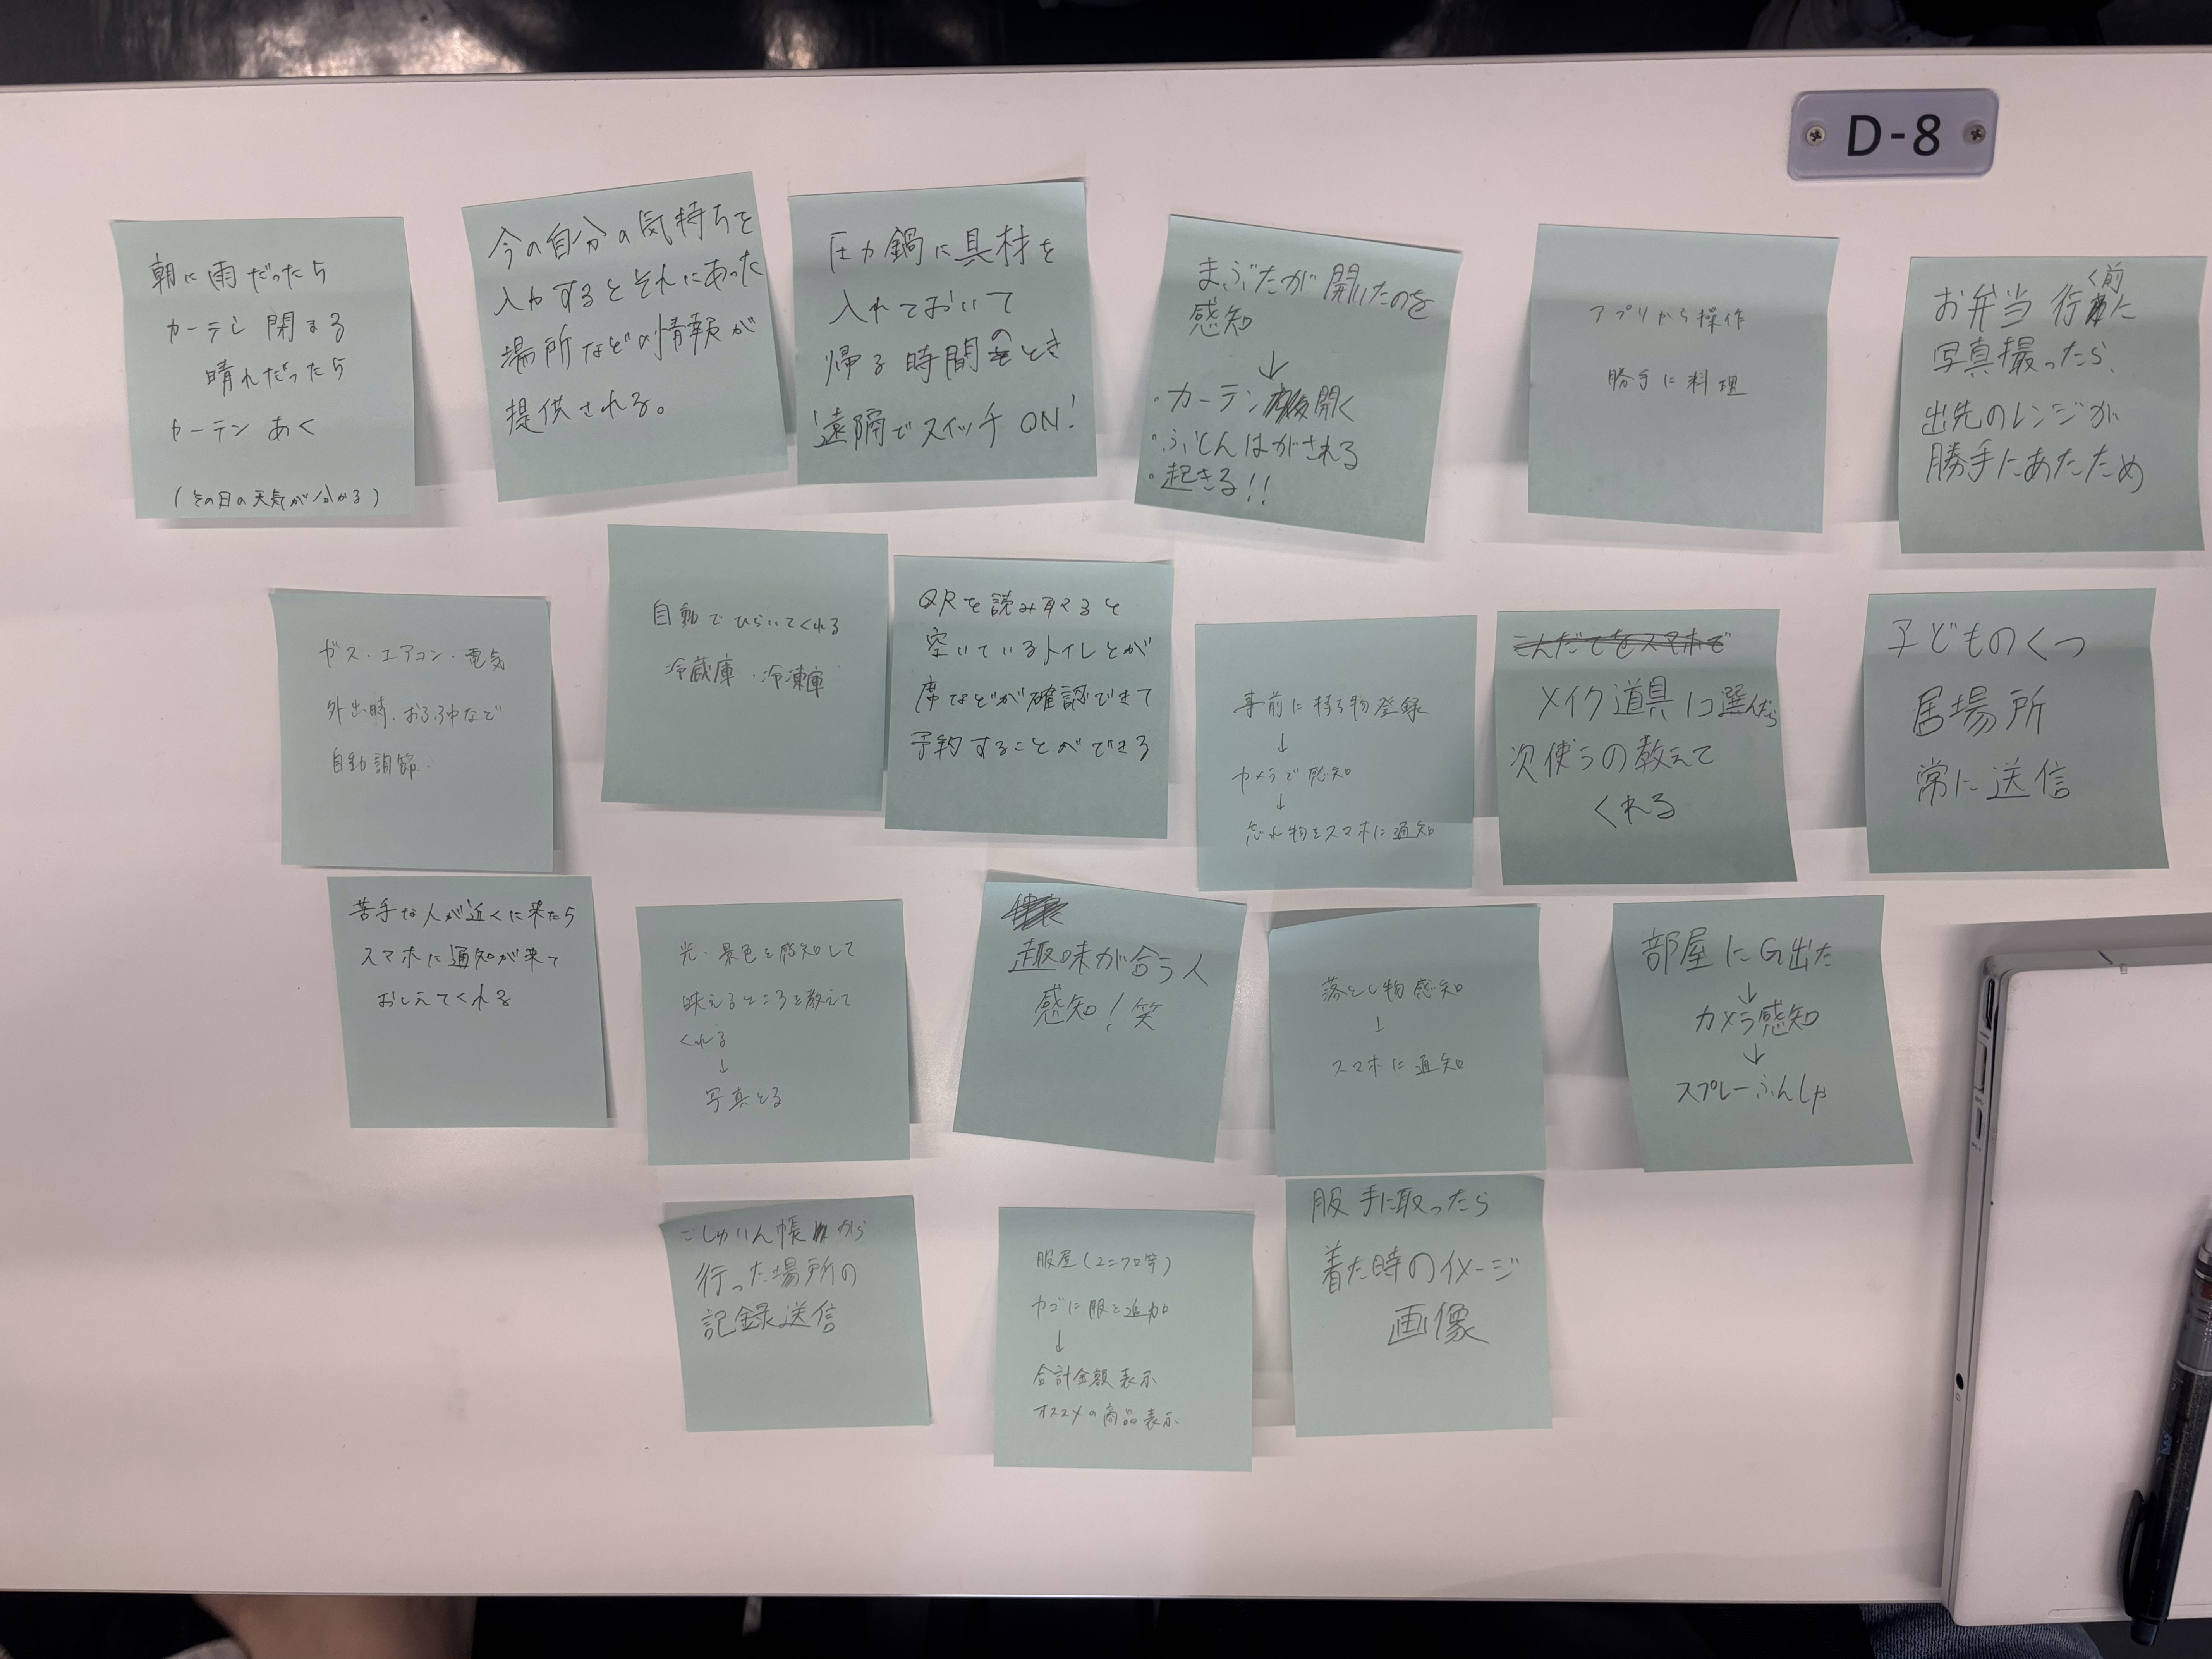 D-8
朝に雨だったら
カーテン閉まる
晴れだったら
カーテンあく
(その日の天気が分かる)
今の自分の気持ちを
入力するとそれにあった
場所などの情報が
提供される。
圧力鍋に具材を
入れておいて
帰る時間のとき
遠隔でスイッチON!
まぶたが開いたのを
感知
↓
・カーテン開く
・ふとんはがされる
・起きる!!
アプリから操作
勝手に料理
お弁当行く前に
写真撮ったら、
出先のレンジが
勝手にあたため
ガス・エアコン・電気
外出時、おふろ中など
自動調節.
自動でひらいてくれる
冷蔵庫・冷凍庫
QRを読み取ると
空いているトイレとか
席などが確認できて
予約することができる
事前に持ち物登録
↓
カメラで感知
↓
忘れ物をスマホに通知
こんだてをスマホで
メイク道具1コ選んだら
次使うの教えて
くれる
子どものくつ
居場所
常に送信
苦手な人が近くに来たら
スマホに通知が来て
おしえてくれる
光・景色を感知して
映えるところを教えて
くれる
↓
写真とる
趣味が合う人
感知!笑
落とし物感知
↓
スマホに通知
部屋にG出た
↓
カメラ感知
↓
スプレーふんしゃ
ごしゅいん帳から
行った場所の
記録送信
服屋(ユニクロ等)
カゴに服を追加
↓
合計金額表示
オススメの商品表示
服手に取ったら
着た時のイメージ
画像